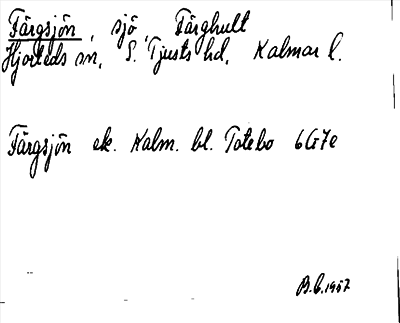 Färgsjön, sjö, Färghult
Hjorteds sn, S. Tjusts hd, Kalmar l.
Färgsjön ek. Kalm. bl. Totebo 6G7e
1957